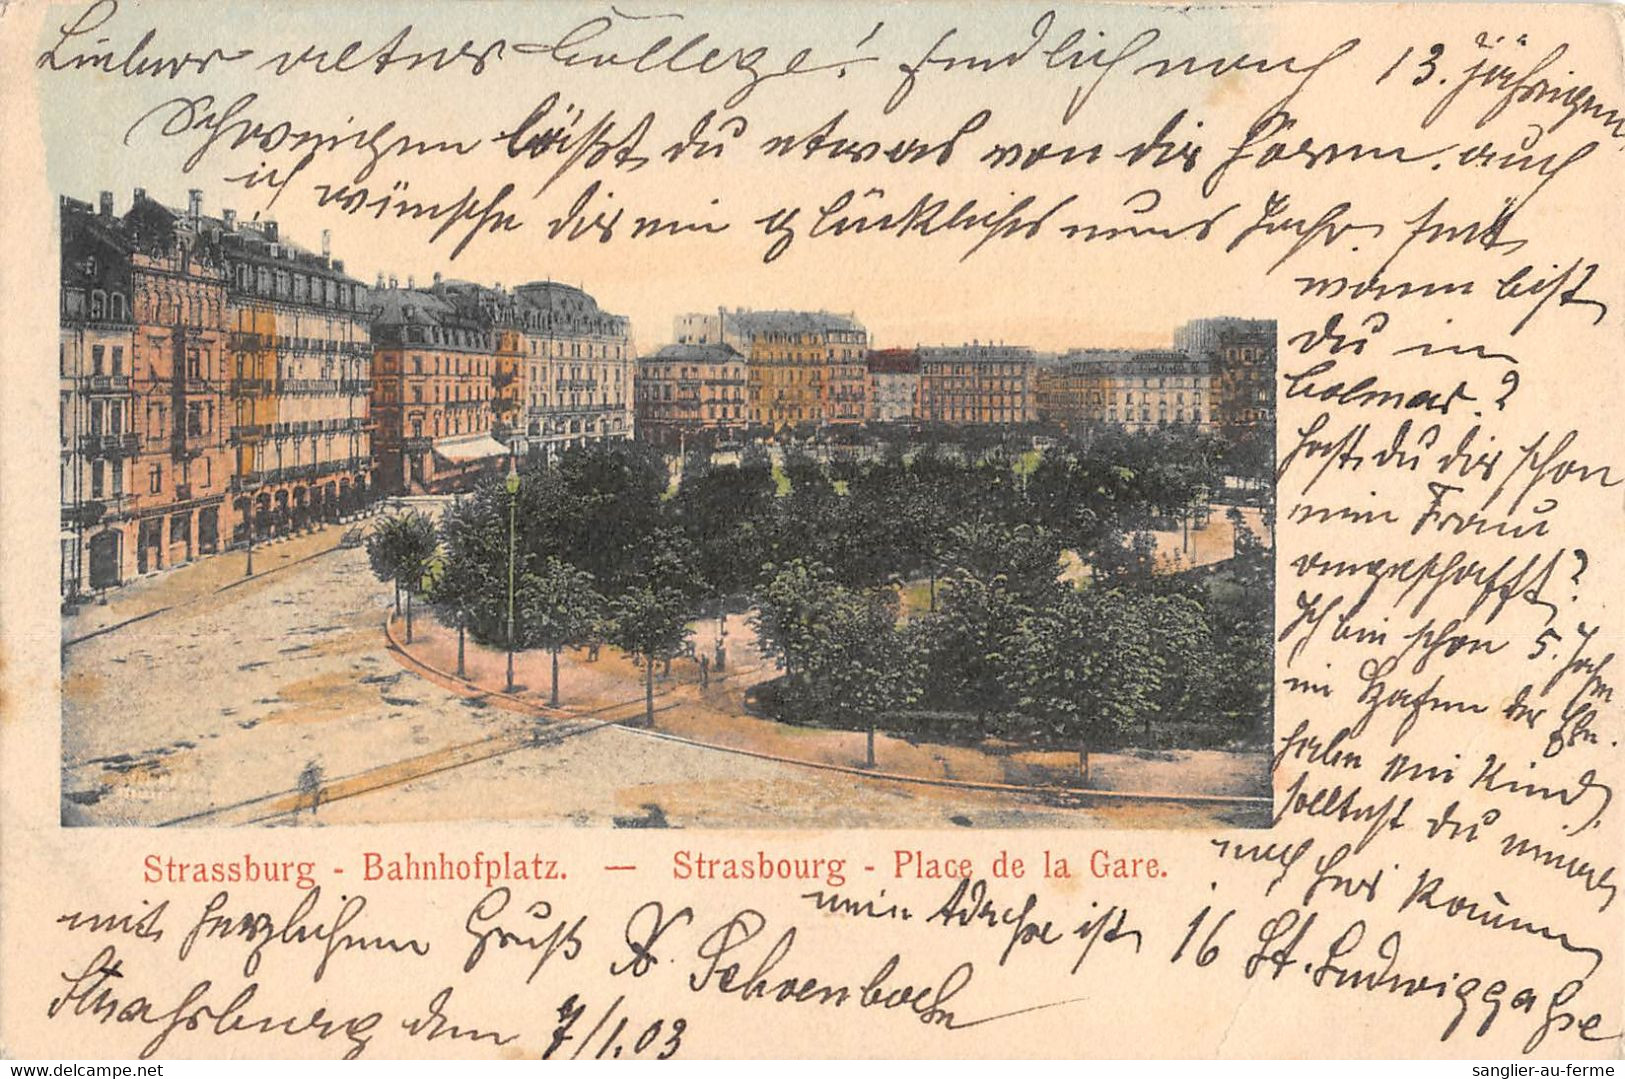 Lieber alter College! Endlich nach 13. jährigen
Schweigen läßt du etwas von dir hören. auch
ich wünsche dir ein glückliches neues Jahr. seit
wann bist
du in
Colmar?
hast du dir schon
eine Frau
angeschafft?
Ich bin schon 5. Jahr
im Hafen der Ehe.
habe ein Kind
solltest du einmal
nach hier kommen
Strassburg - Bahnhofplatz. — Strasbourg - Place de la Gare.
meine Adresse ist 16 St. Ludwiggasse
mit herzlichem Gruß X. Schoenboehn
Strassburg den 7/1.03
sanglier-au-ferme